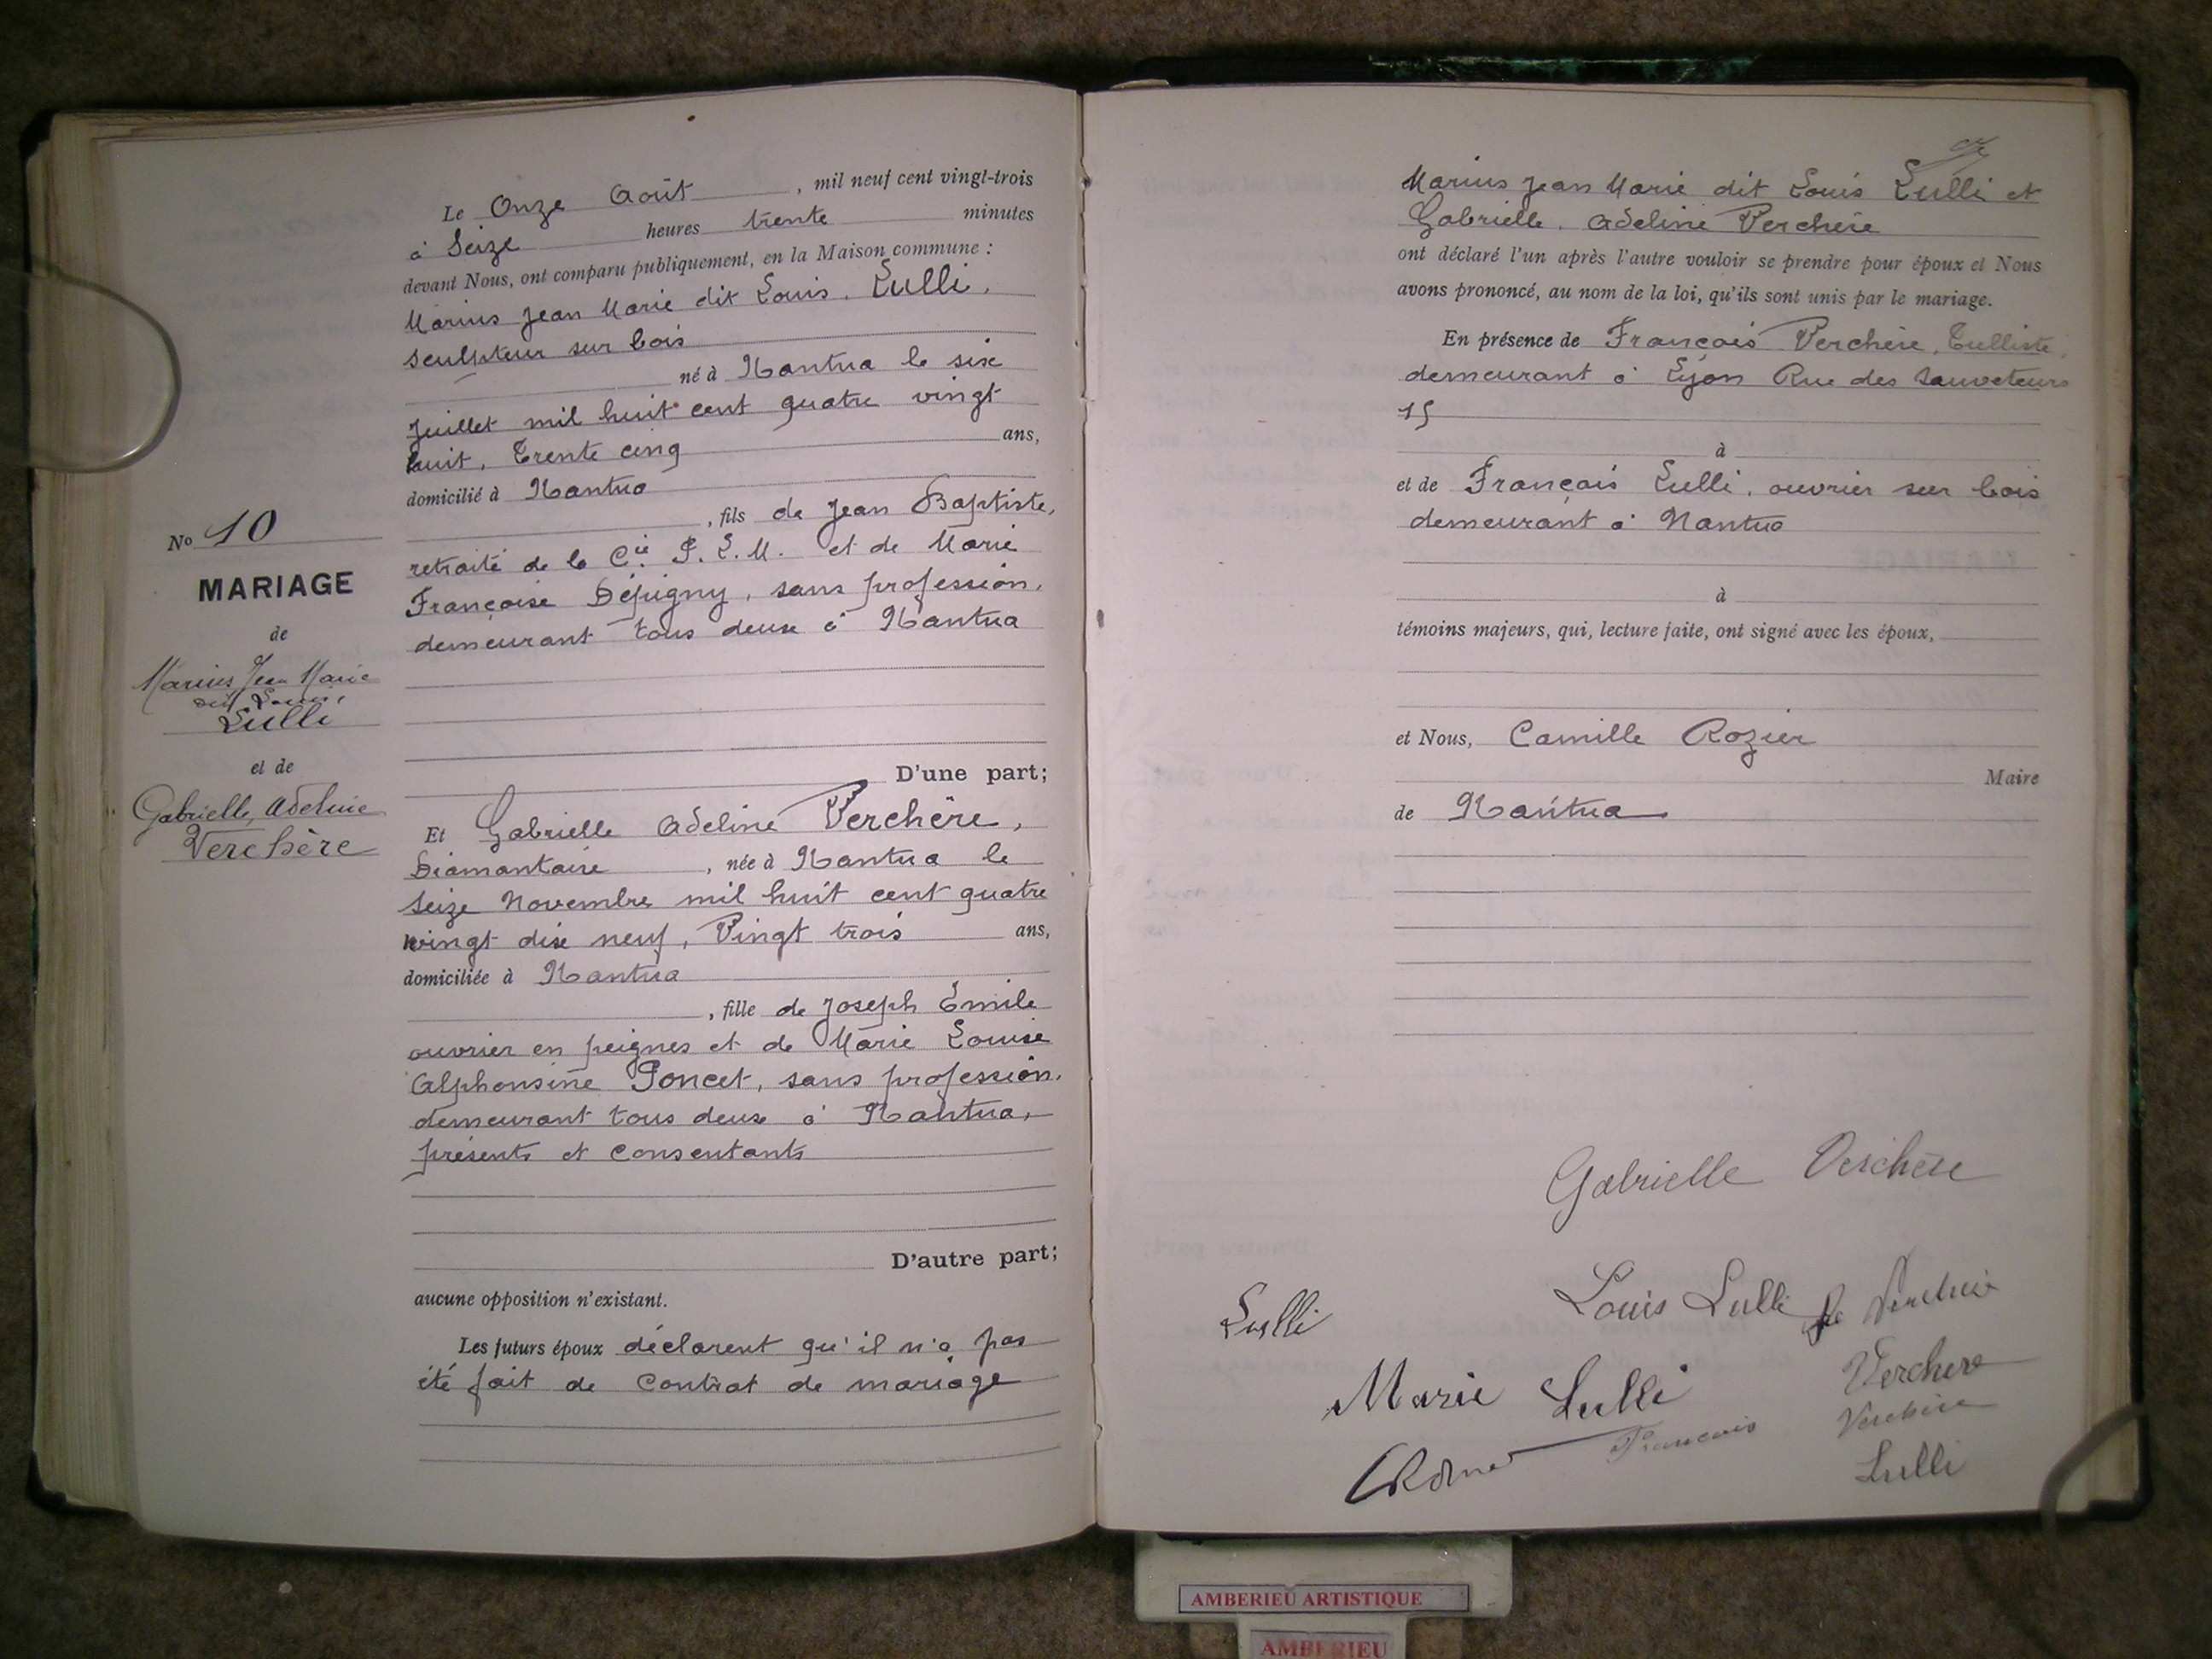 Le Onze Août, mil neuf cent vingt-trois
à Seize heures trente minutes
devant Nous, ont comparu publiquement, en la Maison commune :
Marius Jean Marie dit Louis Lulli,
sculpteur sur bois
né à Nantua le six
Juillet mil huit cent quatre vingt
huit, Trente cinq ans,
domicilié à Nantua
, fils de Jean Baptiste,
retraité de la Cie P. L. M. et de Marie
Françoise Déjugny, sans profession,
demeurant tous deux à Nantua
D'une part;
No 10
MARIAGE
de
Marius Jean Marie
dit Louis
Lulli
et de
Gabrielle, Adeline
Verchère
Et Gabrielle Adeline Verchère,
Diamantaire, née à Nantua le
seize Novembre mil huit cent quatre
vingt dix neuf, Vingt trois ans,
domiciliée à Nantua
, fille de Joseph Emile
ouvrier en peignes et de Marie Louise
Alphonsine Poncet, sans profession,
demeurant tous deux à Nantua,
présents et consentants
D'autre part;
aucune opposition n'existant.
Les futurs époux déclarent qu'il n'a pas
été fait de Contrat de mariage
Marius Jean Marie dit Louis Lulli et
Gabrielle, Adeline Verchère
ont déclaré l'un après l'autre vouloir se prendre pour époux et Nous
avons prononcé, au nom de la loi, qu'ils sont unis par le mariage.
En présence de François Verchère, Tulliste,
demeurant à Lyon Rue des Sauveteurs
15
à
et de François Lulli, ouvrier sur bois
demeurant à Nantua
à
témoins majeurs, qui, lecture faite, ont signé avec les époux,
et Nous, Camille Rozier
Maire
de Nantua
Gabrielle Verchère
Lulli
Louis Lulli
Verchère
Marie Lulli
Verchere
François
Verchère
Lulli
AMBERIEU ARTISTIQUE
AMBERIEU